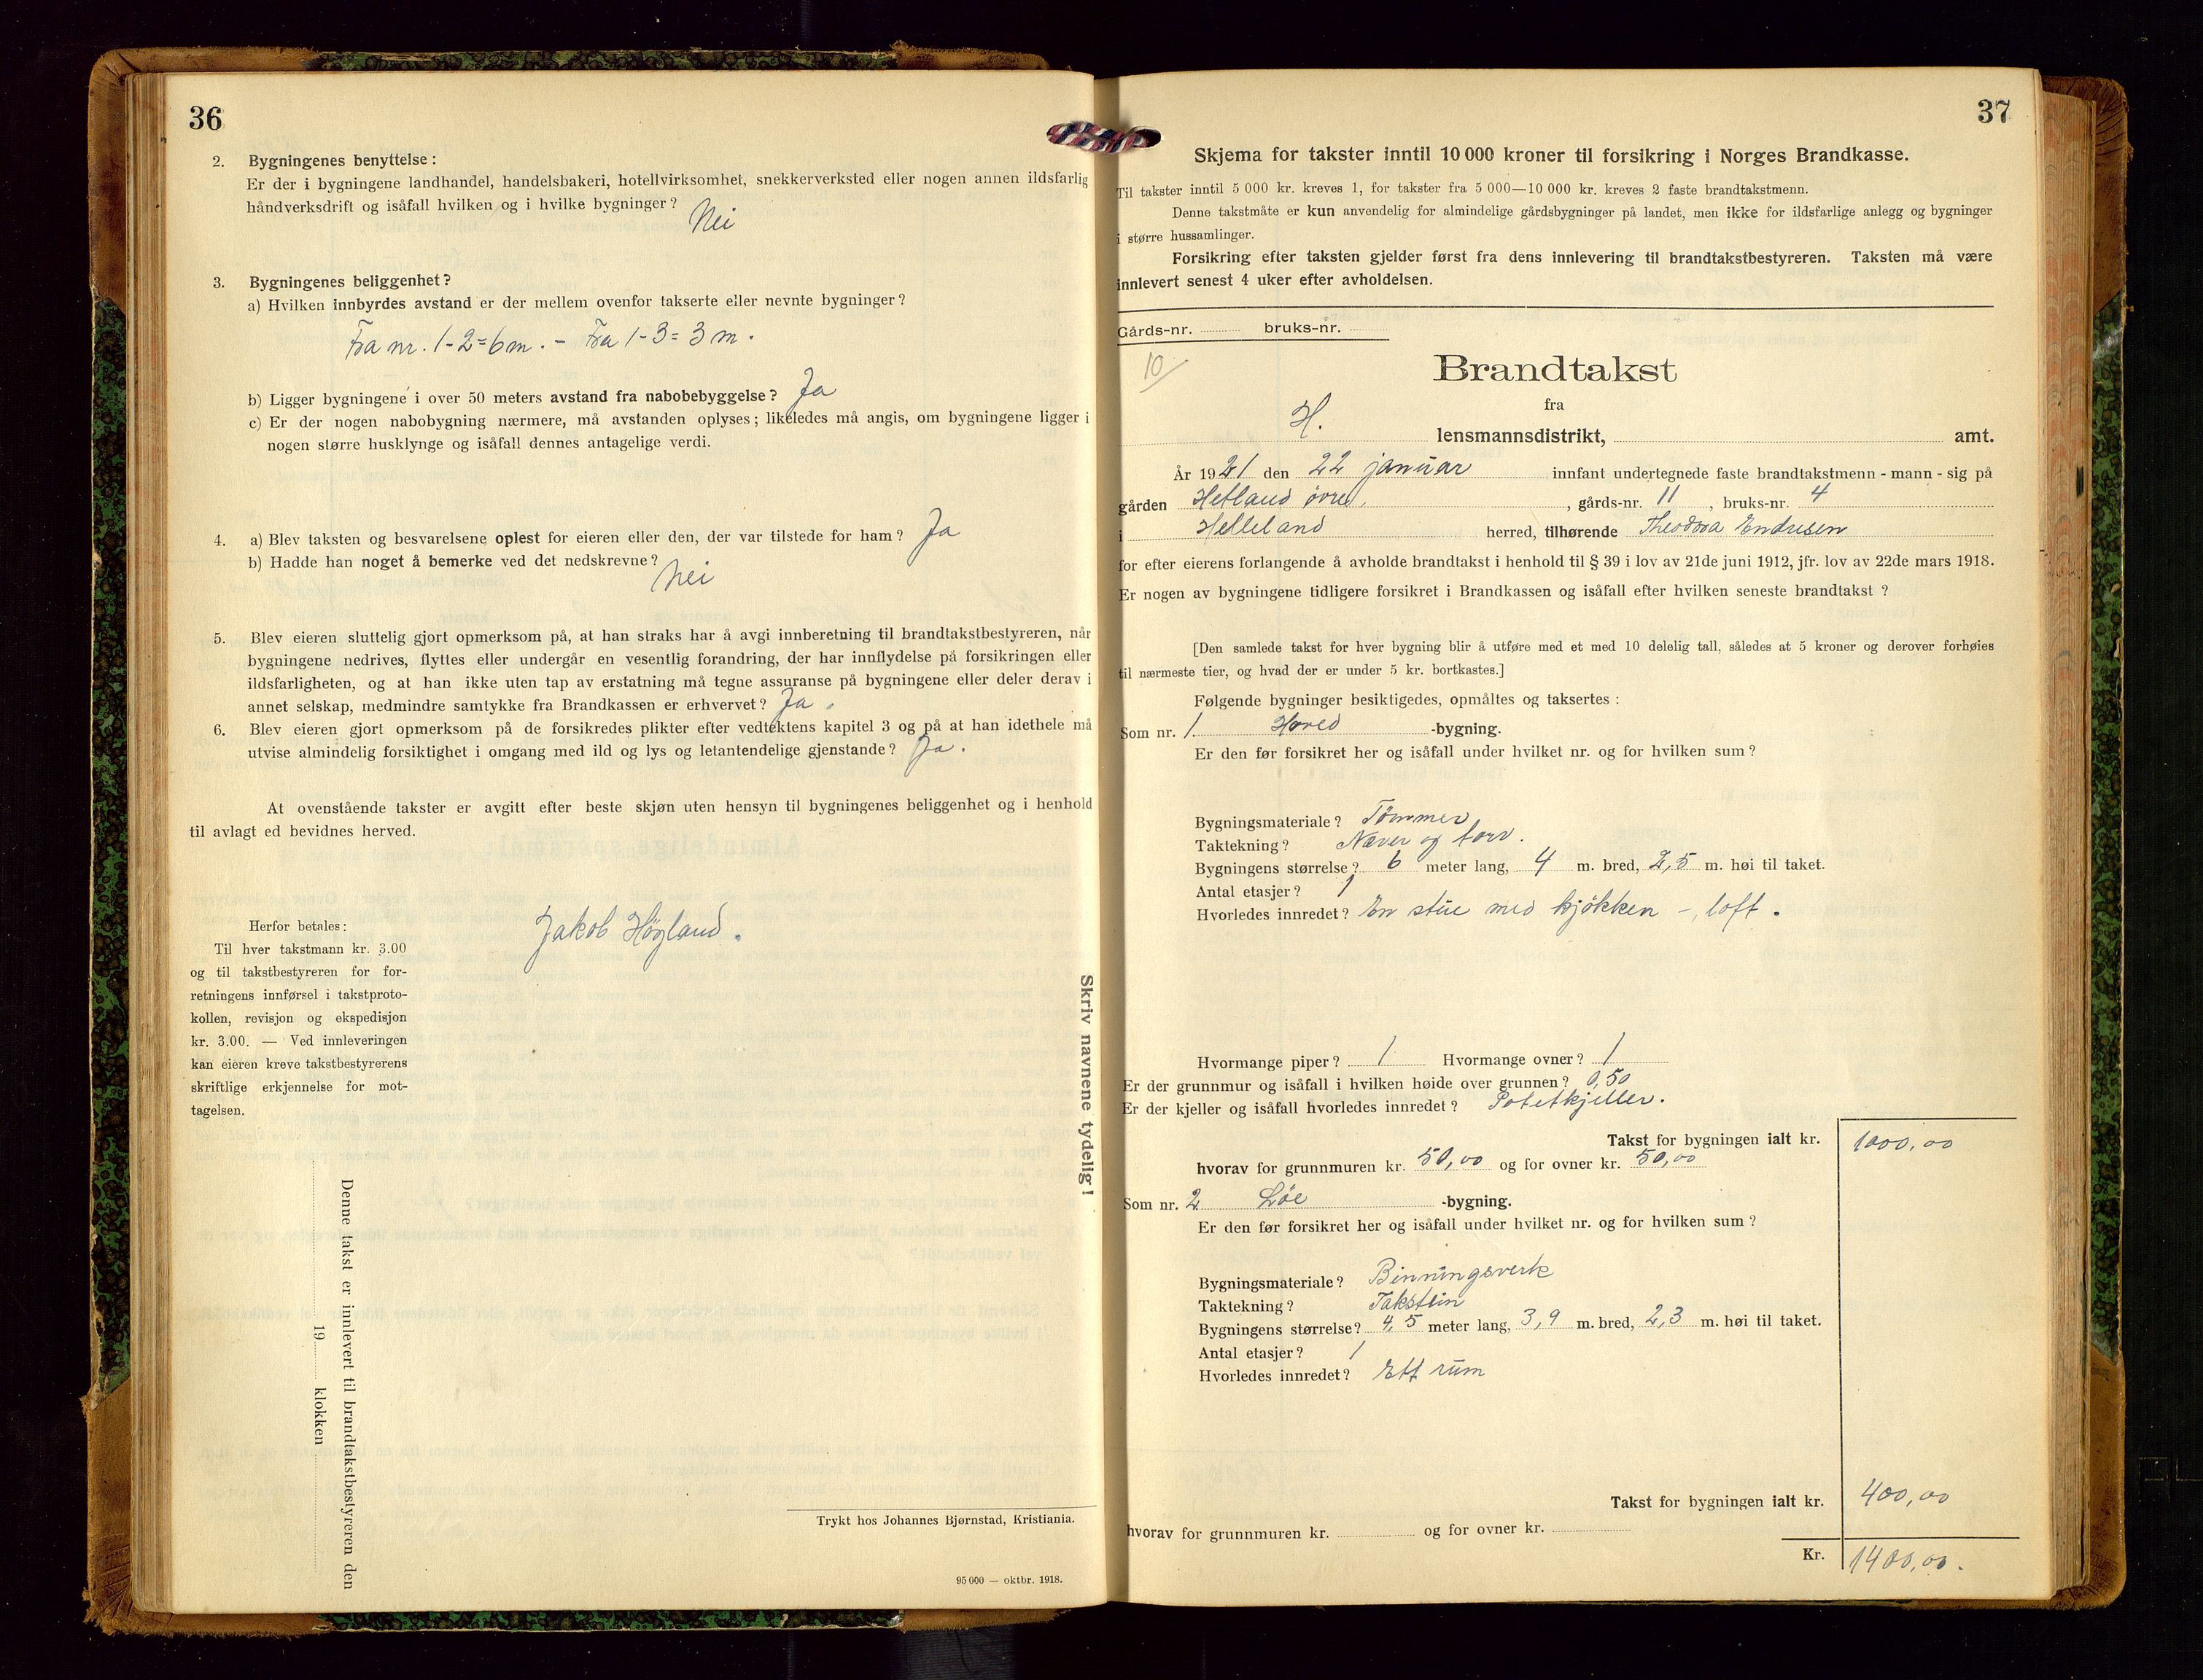 36
2. Bygningenes benyttelse:
Er der i bygningene landhandel, handelsbakeri, hotellvirksomhet, snekkerverksted eller nogen annen ildsfarlig
håndverksdrift og isåfall hvilken og i hvilke bygninger? Nei
3. Bygningenes beliggenhet?
a) Hvilken innbyrdes avstand er der mellem ovenfor takserte eller nevnte bygninger?
Fra nr. 1-2=6m. - Fra 1-3=3m.
b) Ligger bygningene i over 50 meters avstand fra nabobebyggelse? Ja
c) Er der nogen nabobygning nærmere, må avstanden oplyses; likeledes må angis, om bygningene ligger i
nogen større husklynge og isåfall dennes antagelige verdi.
4. a) Blev taksten og besvarelsene oplest for eieren eller den, der var tilstede for ham? Ja
b) Hadde han noget å bemerke ved det nedskrevne? Nei
5. Blev eieren sluttelig gjort opmerksom på, at han straks har å avgi innberetning til brandtakstbestyreren, når
bygningene nedrives, flyttes eller undergår en vesentlig forandring, der har innflydelse på forsikringen eller
ildsfarligheten, og at han ikke uten tap av erstatning må tegne assuranse på bygningene eller deler derav i
annet selskap, medmindre samtykke fra Brandkassen er erhvervet? Ja.
6. Blev eieren gjort opmerksom på de forsikredes plikter efter vedtektens kapitel 3 og på at han idethele må
utvise almindelig forsiktighet i omgang med ild og lys og letantendelige gjenstande? Ja.
At ovenstående takster er avgitt efter beste skjøn uten hensyn til bygningenes beliggenhet og i henhold
til avlagt ed bevidnes herved.
Jakob Högland.
Herfor betales:
Til hver takstmann kr. 3.00
og til takstbestyreren for for-
retningens innførsel i takstproto-
kollen, revisjon og ekspedisjon
kr. 3.00. — Ved innleveringen
kan eieren kreve takstbestyrerens
skriftlige erkjennelse for mot-
tagelsen.
Skriv navnene tydelig!
Denne takst er innlevert til brandtakstbestyreren den
19 klokken
Trykt hos Johannes Bjørnstad, Kristiania.
95 000 — oktbr. 1918.
37
Skjema for takster inntil 10 000 kroner til forsikring i Norges Brandkasse.
Til takster inntil 5 000 kr. kreves 1, for takster fra 5 000—10 000 kr. kreves 2 faste brandtakstmenn.
Denne takstmåte er kun anvendelig for almindelige gårdsbygninger på landet, men ikke for ildsfarlige anlegg og bygninger
i større hussamlinger.
Forsikring efter taksten gjelder først fra dens innlevering til brandtakstbestyreren. Taksten må være
innlevert senest 4 uker efter avholdelsen.
Gårds-nr. bruks-nr.
10
Brandtakst
fra
H. lensmannsdistrikt, amt.
År 1921 den 22 januar innfant undertegnede faste brandtakstmenn - mann - sig på
gården Hetland øvre, , gårds-nr. 11 , bruks-nr. 4
i Helleland herred, tilhørende Theodora Endresen
for efter eierens forlangende å avholde brandtakst i henhold til § 39 i lov av 21de juni 1912, jfr. lov av 22de mars 1918.
Er nogen av bygningene tidligere forsikret i Brandkassen og isåfall efter hvilken seneste brandtakst?
[Den samlede takst for hver bygning blir å utføre med et med 10 delelig tall, således at 5 kroner og derover forhøies
til nærmeste tier, og hvad der er under 5 kr. bortkastes.]
Følgende bygninger besiktigedes, opmåltes og taksertes:
Som nr. 1. Hoved -bygning.
Er den før forsikret her og isåfall under hvilket nr. og for hvilken sum?
Bygningsmateriale? Tömmer
Taktekning? Næver og torv.
Bygningens størrelse? 6 meter lang, 4 m. bred, 2,5 m. høi til taket.
Antal etasjer? 1
Hvorledes innredet? En stue med kjökken -, loft.
Hvormange piper? 1 Hvormange ovner? 1
Er der grunnmur og isåfall i hvilken høide over grunnen? 0,50
Er der kjeller og isåfall hvorledes innredet? Potetkjeller.
Takst for bygningen ialt kr. 1000,00
hvorav for grunnmuren kr. 50,00 og for ovner kr. 50,00
Som nr. 2 Löe -bygning.
Er den før forsikret her og isåfall under hvilket nr. og for hvilken sum?
Bygningsmateriale? Binningsverk
Taktekning? Takstein
Bygningens størrelse? 4,5 meter lang, 3,9 m. bred, 2,3 m. høi til taket.
Antal etasjer? 1
Hvorledes innredet? Ett rum
Takst for bygningen ialt kr. 400,00
hvorav for grunnmuren kr. og for ovner kr.
Kr. 1400,00.